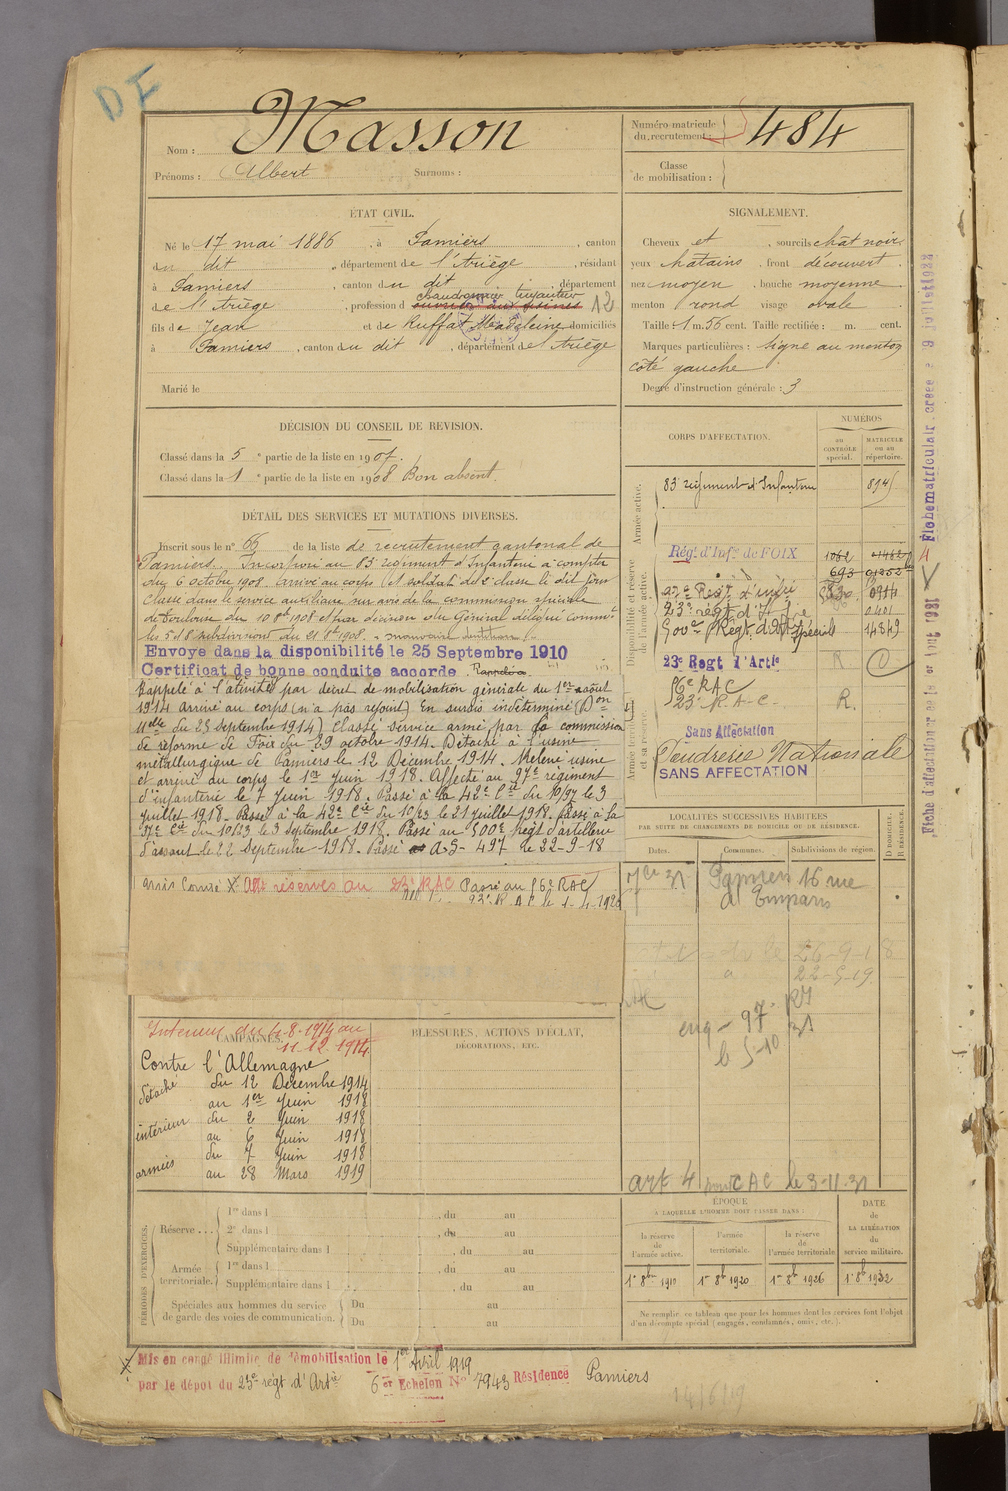 DF
Nom : Masson
Prénoms : Albert Surnoms :
Numéro matricule du recrutement : 484
Classe de mobilisation :
ÉTAT CIVIL.
Né le 17 mai 1886, à Pamiers, canton
du dit, département de l'Ariège, résidant
à Pamiers, canton du dit, département
de l'Ariège, profession d chaudronnier tuyauteur 12
fils de Jean et de Ruffat Magdeleine domiciliés
à Pamiers, canton du dit, département de Ariège
Marié le
SIGNALEMENT.
Cheveux et, sourcils chât noir
yeux chatains, front découvert.
nez moyen, bouche moyenne
menton rond visage ovale
Taille : 1 m. 56 cent. Taille rectifiée : m. cent.
Marques particulières : signe au menton
côté gauche
Degré d'instruction générale : 3
DÉCISION DU CONSEIL DE REVISION.
Classé dans la 5e partie de la liste en 1907.
Classé dans la 1e partie de la liste en 1908 Bon absent.
DÉTAIL DES SERVICES ET MUTATIONS DIVERSES.
Inscrit sous le n° 66 de la liste de recrutement cantonal de
Pamiers. Incorporé au 83e régiment d'Infanterie à compter
du 6 octobre 1908. arrivé au corps et soldat de 2e classe le dit jour
Classé dans le service auxiliaire sur avis de la commission spéciale
de Toulouse du 10 8bre 1908 et par décision du Général délégué
Envoyé dans la disponibilité le 25 Septembre 1910
Certificat de bonne conduite accordé. Rappelé a
Rappelé à l'activité par décret de mobilisation générale du 1er août
1914 arrivé au corps (n'a pas rejoint) En sursis indéterminé (Don
Mlle du 23 septembre 1914) Classé service armé par la commission
de réforme de Foix du 29 octobre 1914. Détaché à l'usine
métallurgique de Pamiers le 12 Décembre 1914. Relevé usine
et arrivé du corps le 1er Juin 1918. Affecté au 97e régiment
d'infanterie le 7 Juin 1918. Passé à la 42e Cie du 10/97 le 3
Juillet 1918. Passé à la 42e Cie du 10/23 le 21 juillet 1918. Passé à la
37e Cie du 10/23 le 3 Septembre 1918. Passé au 500e Régt d'artillerie
d'assaut le 22 Septembre 1918. Passé A.S- 497 le 22-9-18
X réserves au 23e RAC Passé au 56e RAC
CORPS D'AFFECTATION.
NUMÉROS
au CONTRÔLE spécial.
MATRICULE ou au répertoire.
Armée active.
83e régiment d'Infanterie
Disponibilité et réserve de l'armée active.
Régt d'Infie de FOIX 1062 01462
693 01252
500e Régt d'Art spéciale 14849
23e Regt d'Artie R
Armée territoriale et sa réserve.
56e RAC
23e R.A.C. R.
Sans Affectation
Poudrerie Nationale
SANS AFFECTATION
Fiche d'affectation
Fiche matriculaire créée le 9 juillet 1922
LOCALITÉS SUCCESSIVES HABITÉES
PAR SUITE DE CHANGEMENTS DE DOMICILE OU DE RÉSIDENCE.
Dates. Communes. Subdivisions de région. D DOMICILE. R RÉSIDENCE.
Pamiers 16 rue
d'Emparis
26-9-18
22-5-19
eng - 97e RI
le 5-10 31
art 4 pour CAC le 3-11-31
CAMPAGNES.
Intérieur du 4-8-1914 au
11.12.1914
Contre l'Allemagne
détaché du 12 Décembre 1914
au 1er Juin 1918
intérieur du 2 Juin 1918
au 6 Juin 1918
armées du 7 Juin 1918
au 28 Mars 1919
BLESSURES, ACTIONS D'ÉCLAT,
DÉCORATIONS, ETC.
PÉRIODES D'EXERCICES.
Réserve...
1re dans l , du au
2e dans l , du au
Supplémentaire dans l , du au
Armée territoriale.
1re dans l , du au
Supplémentaire dans l , du au
Spéciales aux hommes du service de garde des voies de communication.
Du au
Du au
ÉPOQUE
À LAQUELLE L'HOMME DOIT PASSER DANS :
la réserve de l'armée active.
l'armée territoriale.
la réserve de l'armée territoriale
DATE de LA LIBÉRATION du service militaire.
1er 8bre 1910
1er 8b 1920
1er 8b 1926
1er 8b 1932
Ne remplir ce tableau que pour les hommes dont les services font l'objet
d'un décompte spécial (engagés, condamnés, omis, etc.).
X Mis en congé illimité de démobilisation le 1er Avril 1919
par le dépôt du 23e régt d'Artie 6er Echelon N° 7943 Résidence Pamiers
14/6/19